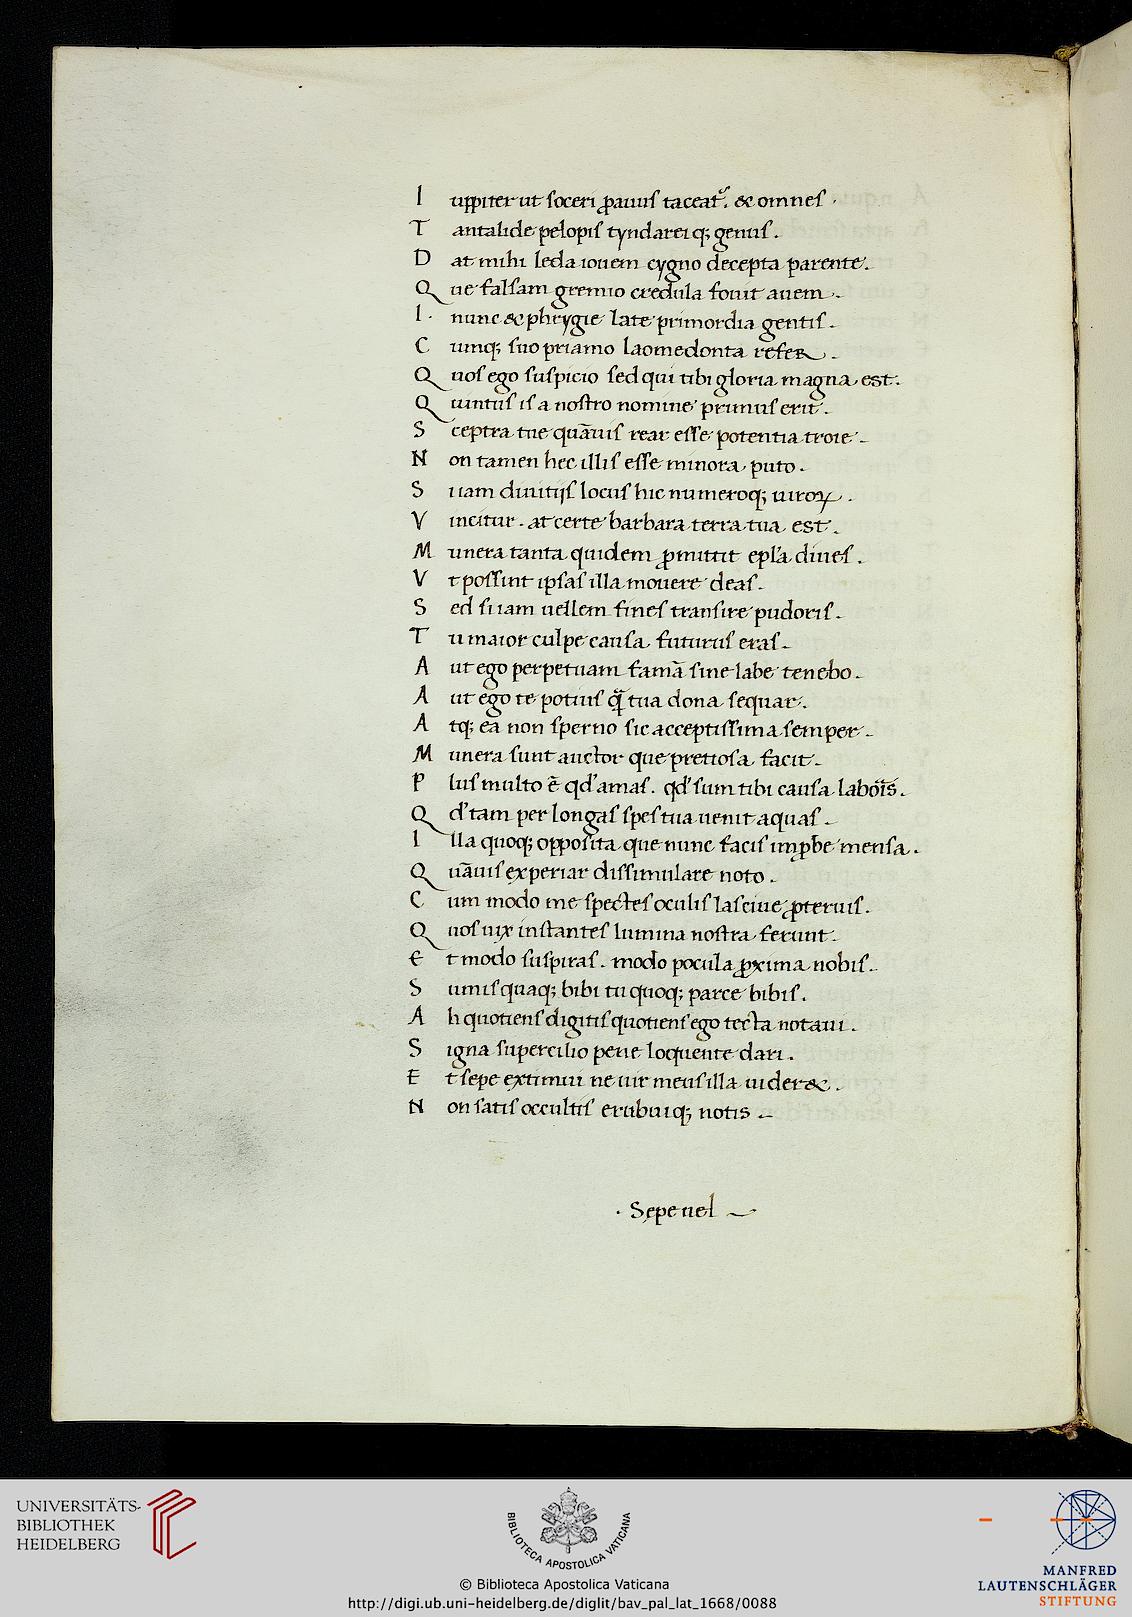 I uppiter ut soceri ꝓauus taceat᷑. & omnes .
T antalide pelopis tyndareiq; genus .
D at mihi leda iouem cygno decepta parente .
Q ue falsam gremio credula fouit auem .
I . nunc & phrygie late primordia gentis .
C umq; suo priamo laomedonta refer .
Q uos ego suspicio sed qui tibi gloria magna est .
Q uintus is a nostro nomine primus erit .
S ceptra tue quāuis rear esse potentia troie .
N on tamen hec illis esse minora puto .
S i iam diuitijs locus hic numeroq; uiroꝝ .
V incitur . at certe barbara terra tua est .
M unera tanta quidem ꝓmittit epl'a diues .
V t possint ipsas illa mouere deas .
S ed si iam uellem fines transire pudoris .
T u maior culpe causa futurus eras .
A ut ego perpetuam famā sine labe tenebo .
A ut ego te potius q̃ tua dona sequar .
A tq; ea non sperno sic acceptissima semper .
M unera sunt auctor que pretiosa facit .
P lus multo ē qd' amas . qd' sum tibi causa labōis .
Q d' tam per longas spes tua uenit aquas .
I lla quoq; opposita que nunc facis imꝓbe mensa .
Q uāuis experiar dissimulare noto .
C um modo me spectes oculis lasciue ꝓteruis .
Q uos uix instantes lumina nostra ferunt .
E t modo suspiras . modo pocula ꝓxima nobis .
S umis quaq; bibi tu quoq; parce bibis .
A h quotiens digitis quotiens ego tecta notaui .
S igna supercilio pene loquente dari .
E t sepe extimui ne uir meus illa uider& .
N on satis occultis erubuiq; notis .
. Sepe uel
UNIVERSITÄTS-
BIBLIOTHEK
HEIDELBERG
BIBLIOTECA APOSTOLICA VATICANA
MANFRED
LAUTENSCHLÄGER
STIFTUNG
© Biblioteca Apostolica Vaticana
http://digi.ub.uni-heidelberg.de/diglit/bav_pal_lat_1668/0088